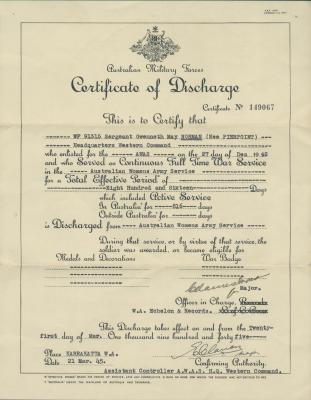 Australian Military Forces
Certificate of Discharge
Certificate Nº 149067
This is to Certify that
WF 91315 Sergeant Gwenneth May NORMAN (Nee PIERPOINT)
Headquarters Western Command
who enlisted for the ---- AWAS ---- on the 27 day of Dec 1942
and who Served on Continuous Full Time War Service
in the ---- Australian Womens Army Service ----
for a Total Effective Period of
Eight Hundred and Sixteen Days
which included Active Service
In Australia for ---- 816 ---- days
Outside Australia for ---- days
is Discharged from ---- Australian Womens Army Service ----
During that service, or by virtue of that service, the
soldier was awarded, or became eligible for
Medals and Decorations War Badge
Major.
Officer in Charge,
W.A. Echelon & Records.
This Discharge takes effect on and from the Twenty-
first day of Mar. One thousand nine hundred and forty five
Place KARRAKATTA W.A.
Date 21 Mar. 45.
Confirming Authority.
Assistant Controller A.W.A.S. H.Q. Western Command.